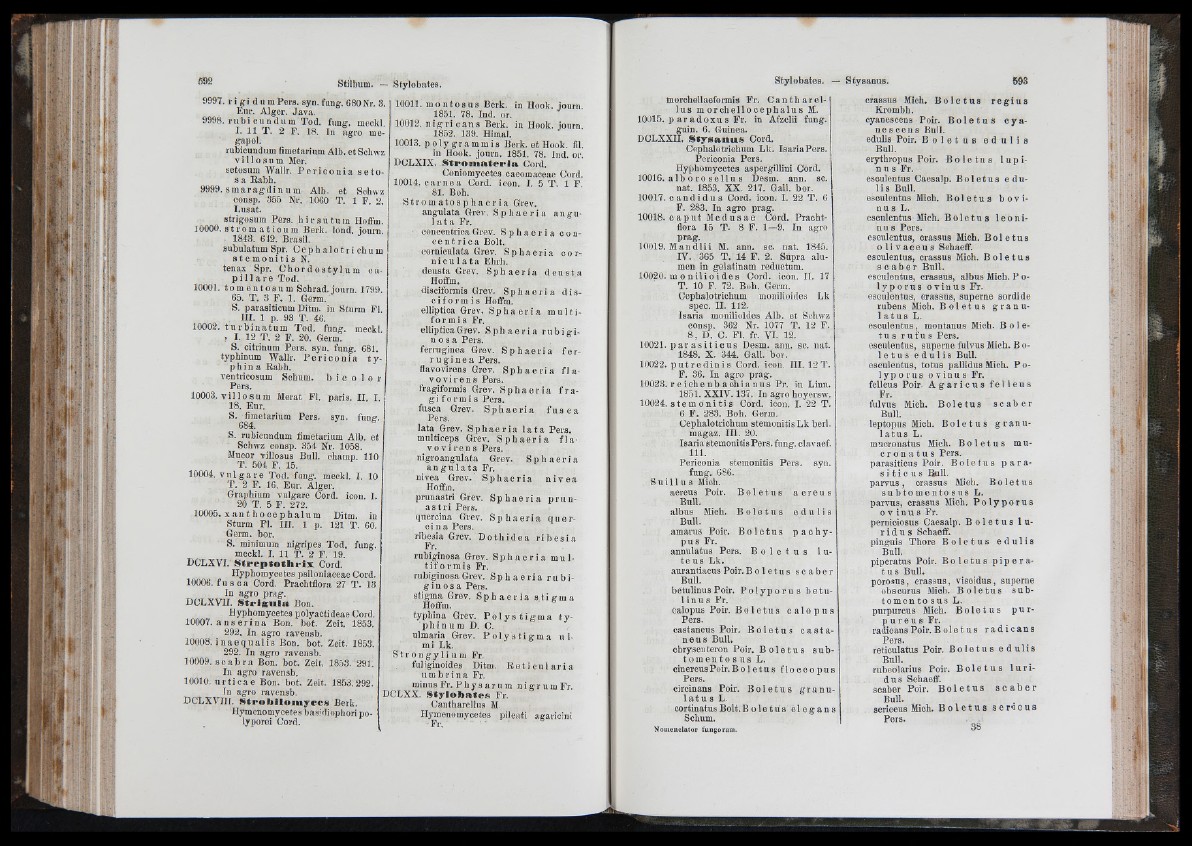 592 Stilbum. — Stylobates.
9997. rigidum Pers. syn. fung. 680 Nr. 3.
Eur. Alger. Java.
9998. rubicundum Tod. fung. meckl.
I. 11 T. 2 F. 18. In agro me-
gapol.
rubicundum fimetarium Alb. et Schwz
villosum Mer.
setosum Wallr. Periconia seto-
sa Rabh.
9999. smaragdinum Alb. et Schwz
consp. 355 Nr. 1060 T. 1 F. 2.
Lusat.
strigosum Pers. hirsutum Hoffm.
10000. stromaticum Berk. lond. journ.
1843. 642. Brasil.
subulatum Spr. Cephalotrichum
stemonitis N.
tenax Spr. Chordostylum ca-
pillare Tod.
10001. tomentosum Schrad. journ. 1799.
65. T. 3 F. 1. Germ.
S. parasiticum Ditm. in Sturm Fl.
III. 1 p. 93 T. 46.
10002. turbinatum Tod. fung. meckl.
I. 12 T. 2 F. 20. Germ.
S. citrinum Pers. syn. fung. 681.
typhinum Wallr. Periconia ty-
phina Rabh.
ventricosum Schum. bicolor
Pers.
10003. villosum Merat Fl. paris. II. I.
18. Eur.
S. fimetarium Pers. syn. fung.
684.
S. rubicundum fimetarium Alb. et
Schwz consp. 354 Nr. 1058.
Mucor villosus Bull. champ. 110
T. 504 F. 15.
10004. vulgare Tod. fung. meckl. I. 10
T. 2 F. 16. Eur. Alger.
Graphium vulgare Cord. icon. I.
20 T. 5 F. 272.
10005. xanthocephalum Ditm. in
Sturm Fl. III. 1 p. 121 T. 60.
Germ. bor.
S. minimum nigripes Tod. fung.
meckl. I. 11 T. 2 F. 19.
DCLXVI. Streptothrix Cord.
Hyphomycetes psiloniaceae Cord.
10006. fusca Cord. Prachtflora 27 T. 13
In agro prag.
DCLXVII. Strigula Bon.
Hyphomycetes polyactideae Cord.
10007. anserina Bon. bot. Zeit. 1853.
292. In agro ravensb.
10008. inaequalis Bon. bot. Zeit. 1853.
292. In agro ravensb.
10009. scabra Bon. bot. Zeit. 1853. 291.
In agro ravensb.
10010. urticae Bon. bot. Zeit. 1853. 292.
In agro ravensb.
DCLXVIII. Strobilomyces Berk.
Hymenomycetes basidiophori po-
lyporei Cord.
10011. montosus Berk. in Hook. journ.
1851. 78. Ind. or.
10012. nigricans Berk. in Hook. journ.
1852. 139. Himal.
10013. polygrammis Berk. et Hook. fil.
in Hook. journ. 1851. 78. Ind. or.
DCLXIX. Stromateria Cord.
Coniomycetes caeomaceae Cord.
10014. carnea Cord. icon. I. 5 T. 1 F.
81. Boh.
Stromatosphaeria Grev.
angulata Grev. Sphaeria angu-
lata Fr.
concentrica Grev. Sphaeria con-
centrica Bolt.
corniculata Grev. Sphaeria cor-
niculata Ehrh.
deusta Grev. Sphaeria deusta
Hoffm.
disciformis Grev. Sphaeria dis-
ciformis Hoffm.
elliptica Grev. Sphaeria multi-
formis Fr.
elliptica Grev. Sphaeria rubigi-
nosa Pers.
ferruginea Grev. Sphaeria fer-
ruginea Pers.
flavovirens Grev. Sphaeria fla-
vovirens Pers.
fragiformis Grev. Sphaeria fra-
giformis Pers.
fusca Grev. Sphaeria fusca
Pers.
lata Grev. Sphaeria lata Pers.
multiceps Grev. Sphaeria fla-
vovirens Pers.
nigroangulata Grev. Sphaeria
angulata Fr.
nivea Grev. Sphaeria nivea
Hoffm.
prunastri Grev. Sphaeria prun-
astri Pers.
quercina Grev. Sphaeria quer-
cina Pers.
ribesia Grev. Dothidea ribesia
Fr.
rubiginosa Grev. Sphaeria mul-
tiformis Fr.
rubiginosa Grev. Sphaeria rubi-
ginosa Pers.
stigma Grev. Sphaeria stigma
Hoffm.
typhina Grev. Polystigma ty-
phinum D. C.
ulmaria Grev. Polystigma ul-
mi Lk.
Strongylium Fr
fuliginoides Ditm. Reticularia
umbrina Fr.
minus Fr. Physarum nigrum Fr.
DCLXX. Stylobates Fr.
Cantharellus M
Hymenomycetes pileati agaricini
Fr.
Stylobates. — Stysanus. 593
morchellaeformis Fr. Cantharel-
lus morchellocephalus M.
10015. paradoxus Fr. in Afzelii fung.
guin. 6. Guinea.
DCLXXII. Stysanus Cord.
Cephalotrichum Lk. Isaria Pers.
Periconia Pers.
Hyphomycetes aspergillini Cord.
10016. alborosellus Desm. ann. sc.
nat. 1853. XX. 217. Gall. bor.
10017. candidus Cord. icon. I. 22 T. 6
F. 283. In agro prag.
10018. caput Medusae Cord. Pracht-
flora 15 T. 8 F. 1—9. In agro
prag.
10019. Mandlii M. ann. sc. nat. 1845.
IV. 365 T. 14 F. 2. Supra alu-
men in gelatinam reductum.
10020. monilioides Cord. icon. II. 17
T. 10 F. 72. Boh. Germ.
Cephalotrichum monilioides Lk
spec. II. 112.
Isaria monilioides Alb. et Schwz
consp. 362 Nr. 1077 T. 12 F.
8, D. C. Fl. fr. VI. 12.
10021. parasiticus Desm. ann. sc. nat.
1848. X. 344. Gall. bor.
10022. putredinis Cord. icon. III. 12 T.
F. 36. In agro prag.
10023. reichenbachianus Pr. in Linn.
1851. XXIV. 137. In agro hoyersw.
10024. stemonitis Cord. icon. I. 22 T.
6 F. 283. Boh. Germ.
Cephalotrichum stemonitis Lk berl.
magaz. III. 20.
Isaria stemonitis Pers. fung. clavaef.
111.
Periconia stemonitis Pers. syn.
fung. 686.
Suillus Mich.
aereus Poir. Boletus aereus
Bull.
albus Mich. Boletus edulis
Bull.
amarus Poir. Boletus pachy-
pus Fr.
annulatus Pers. Boletus lu-
teus Lk.
aurantiacus Poir. Boletus scaber
Bull.
betulinus Poir. Polyporus betu-
linus Fr.
calopus Poir. Boletus calopus
Pers.
castaneus Poir. Boletus casta-
neus Bull.
chrysenteron Poir. Boletus sub-
tomentosus L.
cinereus Poir. Boletus floccopus
Pers.
circinans Poir. Boletus granu-
latus L
cortinatus Bolt. Boletus elegans
Schum.
Nomenclator fungorum.
crassus Mich. Boletus regius
Krombh.
cyanescens Poir. Boletus cya-
nescens Bull.
edulis Poir. Boletus edulis
Bull.
erythropus Poir. Boletus lupi-
nus Fr.
esculentus Caesalp. Boletus edu-
lis Bull.
esculentus Mich. Boletus bovi-
nus L.
esculentus Mich. Boletus leoni-
nus Pers.
esculentus, crassus Mich. Boletus
olivaceus Schaeff.
esculentus, crassus Mich. Boletus
scaber Bull.
esculentus, crassus, albus Mich. Po-
lyporus ovinus Fr.
esculentus, crassus, superne sordide
rubens Mich. Boletus granu-
latus L.
esculentus, montanus Mich. Bole-
tus rufus Pers.
esculentus, superne fulvus Mich. Bo-
letus edulis Bull.
esculentus, totus pallidus Mich. Po-
lyporus ovinus Fr.
felleus Poir. Agaricus felleus
Fr.
fulvus Mich. Boletus scaber
Bull.
leptopus Mich. Boletus granu-
latus L.
mucronatus Mich. Boletus mu-
cronatus Pers.
parasiticus Poir. Boletus para-
siticus Bull.
parvus, crassus Mich. Boletus
subtomentosus L.
parvus, crassus Mich. Polyporus
ovinus Fr.
perniciosus Caesalp. Boletus lu-
ridus Schaeff.
pinguis Thore Boletus edulis
Bull.
piperatus Poir. Boletus pipera-
tus Bull.
porosus, crassus, viscidus, superne
obscurus Mich. Boletus sub-
tomentosus L.
purpureus Mich. Boletus pur-
pureus Fr.
radicans Poir. Boletus radicans
Pers.
reticulatus Poir. Boletus edulis
Bull.
rubeolarius Poir. Boletus luri-
dus Schaeff.
scaber Poir. Boletus scaber
Bull.
sericeus Mich. Boletus sericeus
Pers.
38